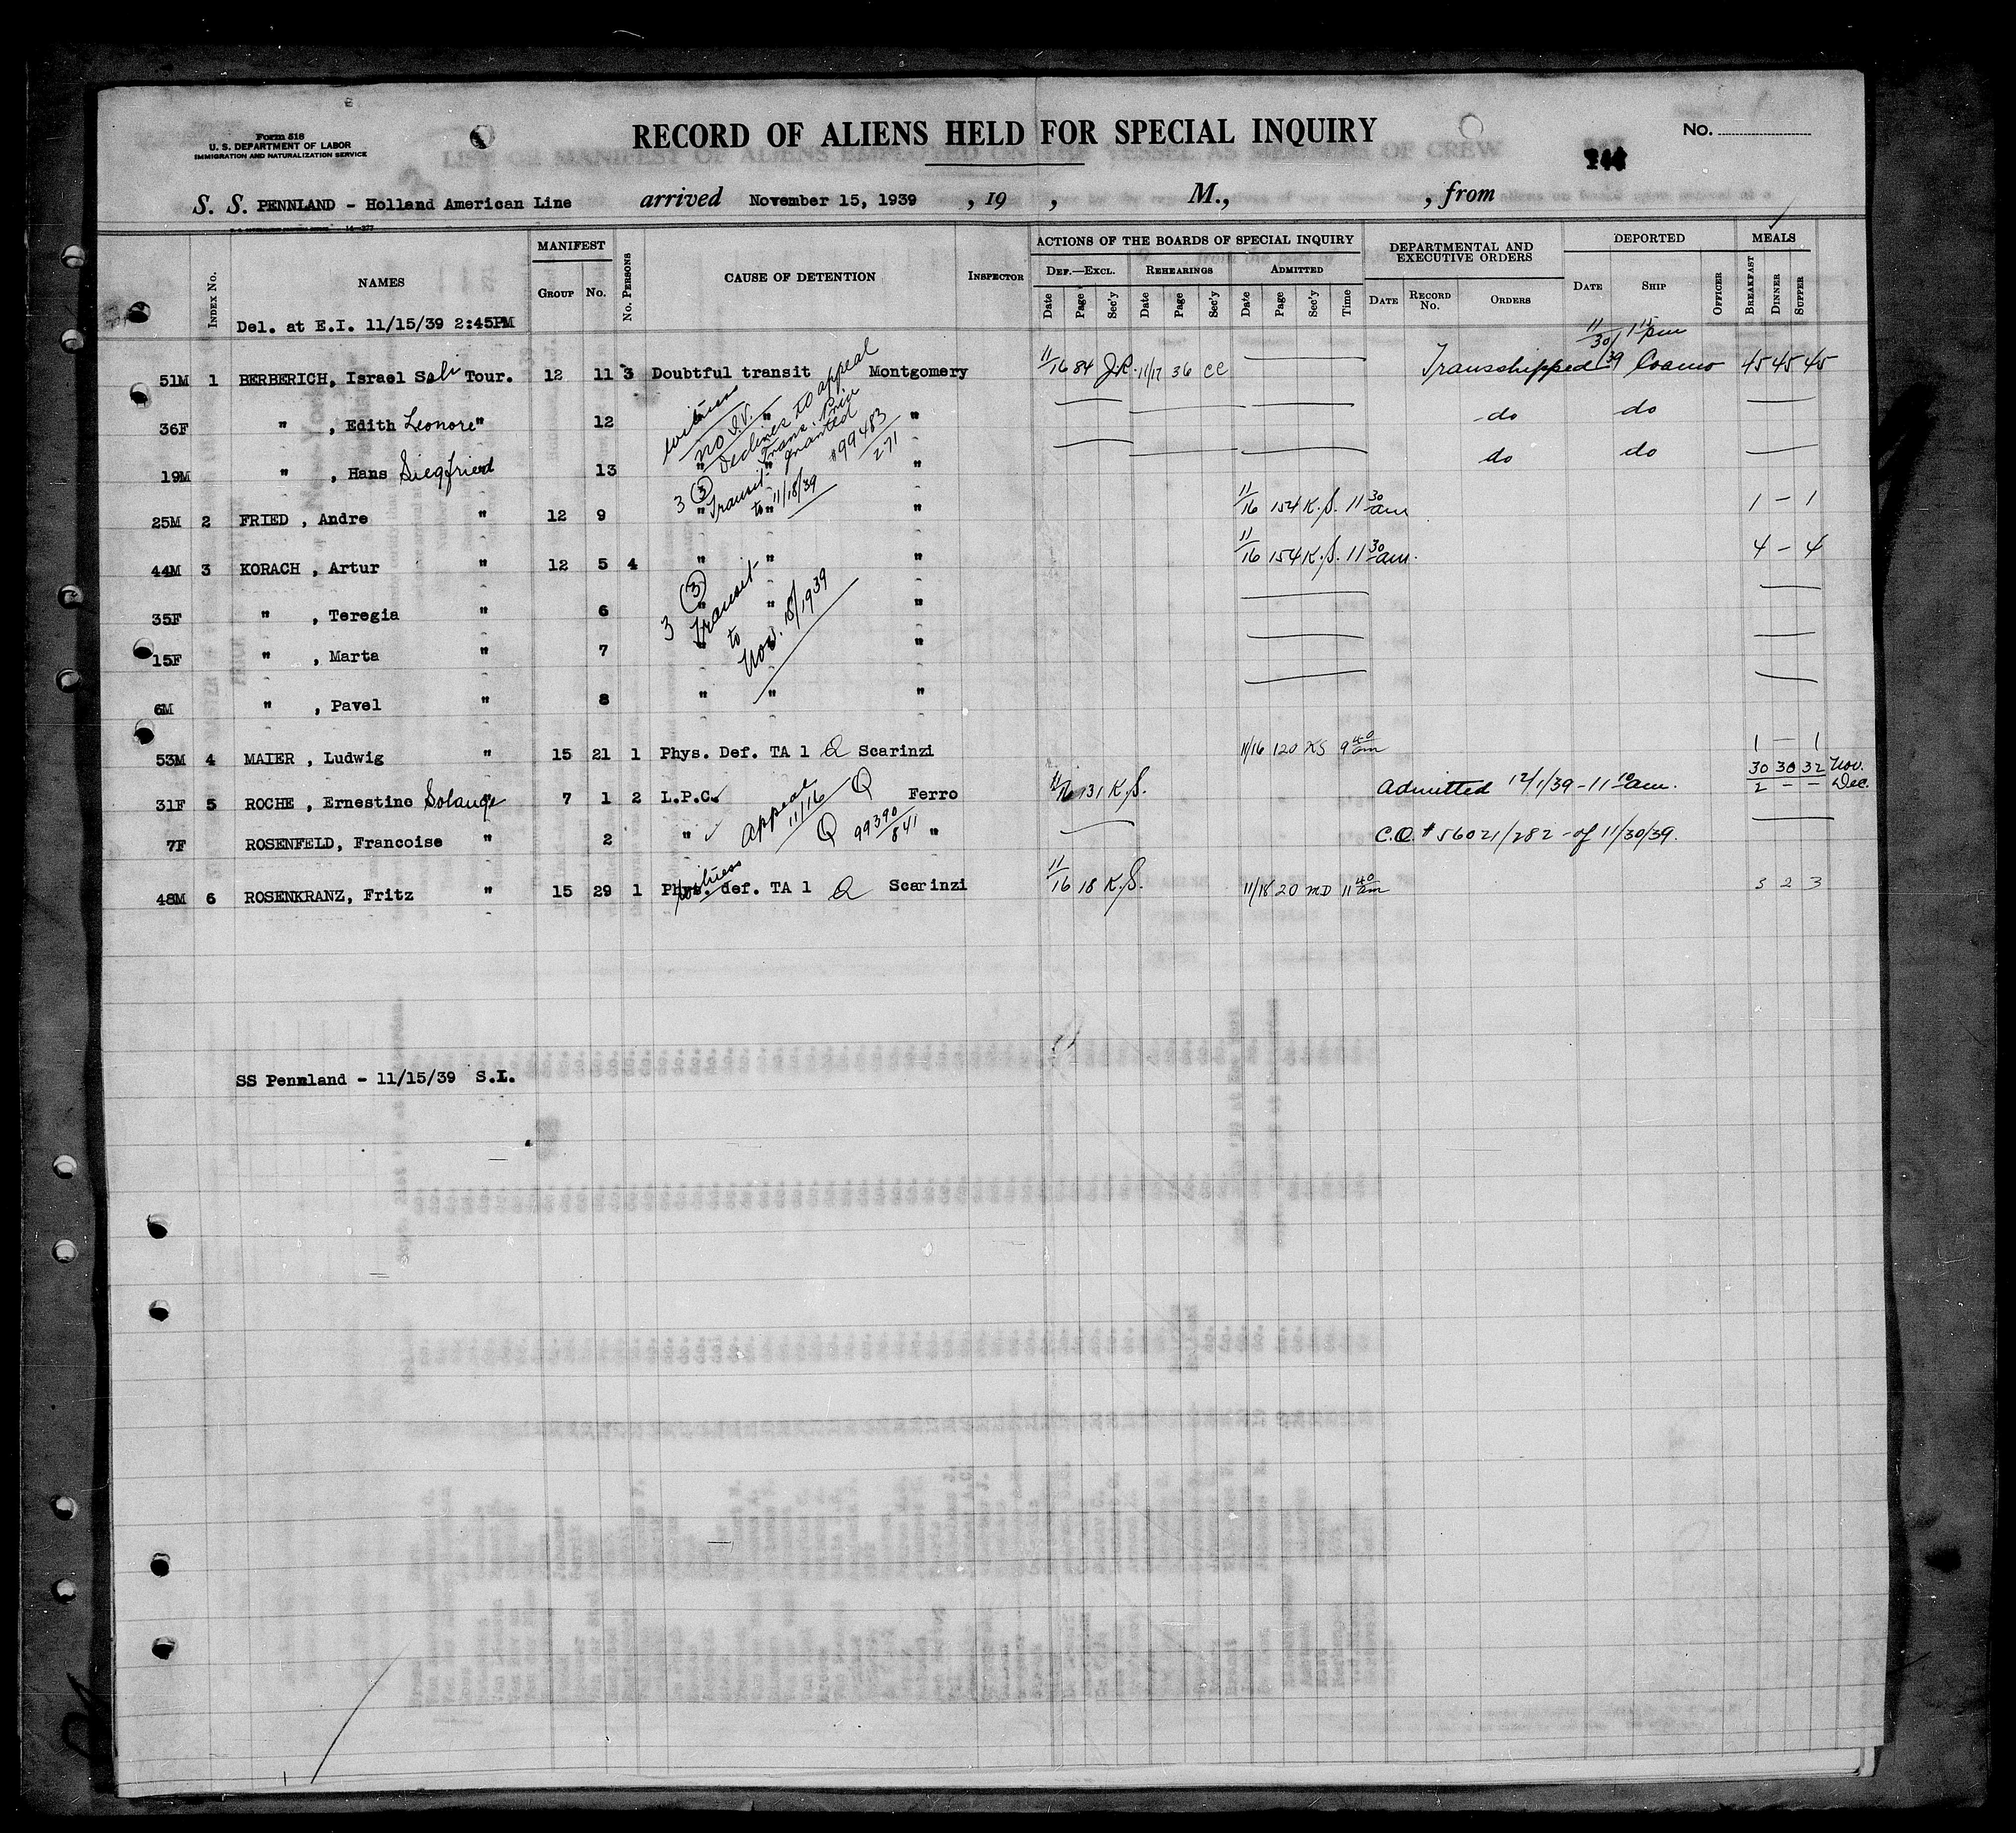 Form 518
U. S. DEPARTMENT OF LABOR
IMMIGRATION AND NATURALIZATION SERVICE
RECORD OF ALIENS HELD FOR SPECIAL INQUIRY
No.
144
S. S. PENNLAND - Holland American Line arrived November 15, 1939 , 19 , M., , from
INDEX No. NAMES MANIFEST GROUP No. No. PERSONS CAUSE OF DETENTION INSPECTOR ACTIONS OF THE BOARDS OF SPECIAL INQUIRY DEPARTMENTAL AND EXECUTIVE ORDERS DEPORTED MEALS
DEF.—EXCL. REHEARINGS ADMITTED
Date Page Sec'y Date Page Sec'y Date Page Sec'y Time DATE RECORD No. ORDERS DATE SHIP OFFICER BREAKFAST DINNER SUPPER
Del. at E.I. 11/15/39 2:45PM
11/30/39 1 15 pm
51M 1 BERBERICH, Israel Sali Tour. 12 11 3 Doubtful transit Montgomery 11/16 84 J.R. 11/17 36 CC Transshipped Coamo 45 45 45
36F " , Edith Leonore " 12 " " do do
19M " , Hans Siegfried 13 " " " do do
witness
no I.V.
Declines to appeal
Trans. Priv
granted
99483/271
3 (3) Transit to 11/18/39
25M 2 FRIED , Andre " 12 9 " " " 11/16 154 K.S. 11 30 am 1 - 1
44M 3 KORACH , Artur " 12 5 4 " " " 11/16 154 K.S. 11 30 am. 4 - 4
35F " , Teregia " 6 " " "
15F " , Marta " 7 " "
6M " , Pavel " 8 " " "
3 (3) Transit to Nov. 18/1939
53M 4 MAIER , Ludwig " 15 21 1 Phys. Def. TA 1 Q Scarinzi 11/16 120 KS 9 40 am 1 - 1
30 30 32 Nov.
31F 5 ROCHE , Ernestine Solange " 7 1 2 L.P.C. Q Ferro 11/16 131 K.S. Admitted 12/1/39 - 11 10 am. 2 - - Dec.
appeal 11/16
7F ROSENFELD, Francoise " 2 " Q 99390/841 " C.O. # 56021/282 - of 11/30/39.
witness
48M 6 ROSENKRANZ, Fritz " 15 29 1 Phys. def. TA 1 Q Scarinzi 11/16 18 K.S. 11/18 20 MD 11 40 am 3 2 3
SS Pennland - 11/15/39 S.I.